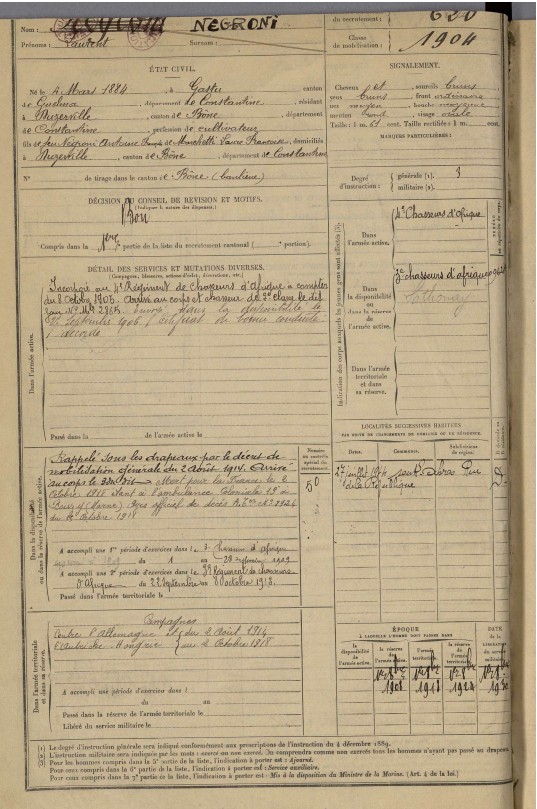 Nom : NEGRONI
Prénoms : Laurent Surnom :
du recrutement : 620
Classe de mobilisation : 1904
ÉTAT CIVIL.
Né le 4 Mars 1884, à canton
de Guelma, département de Constantine, résidant
à Nuzerville, canton de Bône, département
de Constantine, profession de cultivateur
fils de feu Negroni Antoine et de Laure Françoise, domiciliés
à Nuzerville, canton de Bône, département de Constantine
N° de tirage dans le canton de Bône (banlieue)
SIGNALEMENT.
Cheveux et sourcils bruns
yeux bruns, front ordinaire
nez moyen, bouche moyenne
menton rond, visage ovale
Taille : 1 m. 61 cent. Taille rectifiée : 1 m. cent.
MARQUES PARTICULIÈRES :
Degré d'instruction : générale (1). 3
militaire (2).
DÉCISION DU CONSEIL DE RÉVISION ET MOTIFS.
(Indiquer la nature des dispenses.)
Bon
Compris dans la 1ère partie de la liste du recrutement cantonal ( portion).
Indication des corps auxquels les jeunes gens sont affectés
Dans l'armée active.
4e Chasseurs d'Afrique
Dans la disponibilité ou dans la réserve de l'armée active.
3e chasseurs d'afrique
Dans l'armée territoriale et dans sa réserve.
DÉTAIL DES SERVICES ET MUTATIONS DIVERSES.
(Campagnes, blessures, actions d'éclat, décorations, etc.)
Dans l'armée active.
Incorporé au 4e Régiment de Chasseurs d'Afrique à compter
du 8 Octobre 1905. Arrivé au corps et chasseur de 2e classe le dit
jour. Envoyé dans la disponibilité le
Septembre 1906. Certificat de bonne conduite
accordé
Passé dans la de l'armée active le
LOCALITÉS SUCCESSIVES HABITÉES
PAR SUITE DE CHANGEMENTS DE DOMICILE OU DE RÉSIDENCE.
Dates. Communes. Subdivisions de région.
27 juillet 1914 Rue
de la République
Dans la disponibilité ou dans la réserve de l'armée active.
Rappelé sous les drapeaux par le décret de
mobilisation générale du 2 Août 1914. Arrivé
au corps le 3 dit Mort pour la France le 2
Octobre 1918 étant à l'ambulance Coloniale
(Marne) Avis officiel de décès
du Octobre 1918
Numéro au contrôle spécial du recrutement.
50
A accompli une 1re période d'exercices dans le 3e Chasseurs d'Afrique
du 1 au
A accompli une 2e période d'exercices dans le 3e Régiment de chasseurs
d'Afrique du 22 Septembre au 8 Octobre 1913.
Passé dans l'armée territoriale le
Dans l'armée territoriale et dans sa réserve.
Campagnes
Contre l'Allemagne et du 2 Août 1914
l'Autriche-Hongrie au 2 Octobre 1918
A accompli une période d'exercices dans l
du au
Passé dans la réserve de l'armée territoriale le
Libéré du service militaire le
ÉPOQUE
À LAQUELLE L'HOMME DOIT PASSER DANS
la disponibilité de l'armée active. la réserve de l'armée active. l'armée territoriale. la réserve de l'armée territoriale.
DATE DE LA LIBÉRATION du service militaire.
1908 1918 1924 1930
(1) Le degré d'instruction générale sera indiqué conformément aux prescriptions de l'instruction du 4 décembre 1889.
(2) L'instruction militaire sera indiquée par les mots : exercé ou non exercé. On comprendra comme non exercés tous les hommes n'ayant pas passé au drapeau
(3) Pour les hommes compris dans la 5e partie de la liste, l'indication à porter est : Ajourné.
Pour ceux compris dans la 6e partie de la liste, l'indication à porter est : Service auxiliaire.
Pour ceux compris dans la 7e partie de la liste, l'indication à porter est : Mis à la disposition du Ministre de la Marine. (Art. 4 de la loi.)